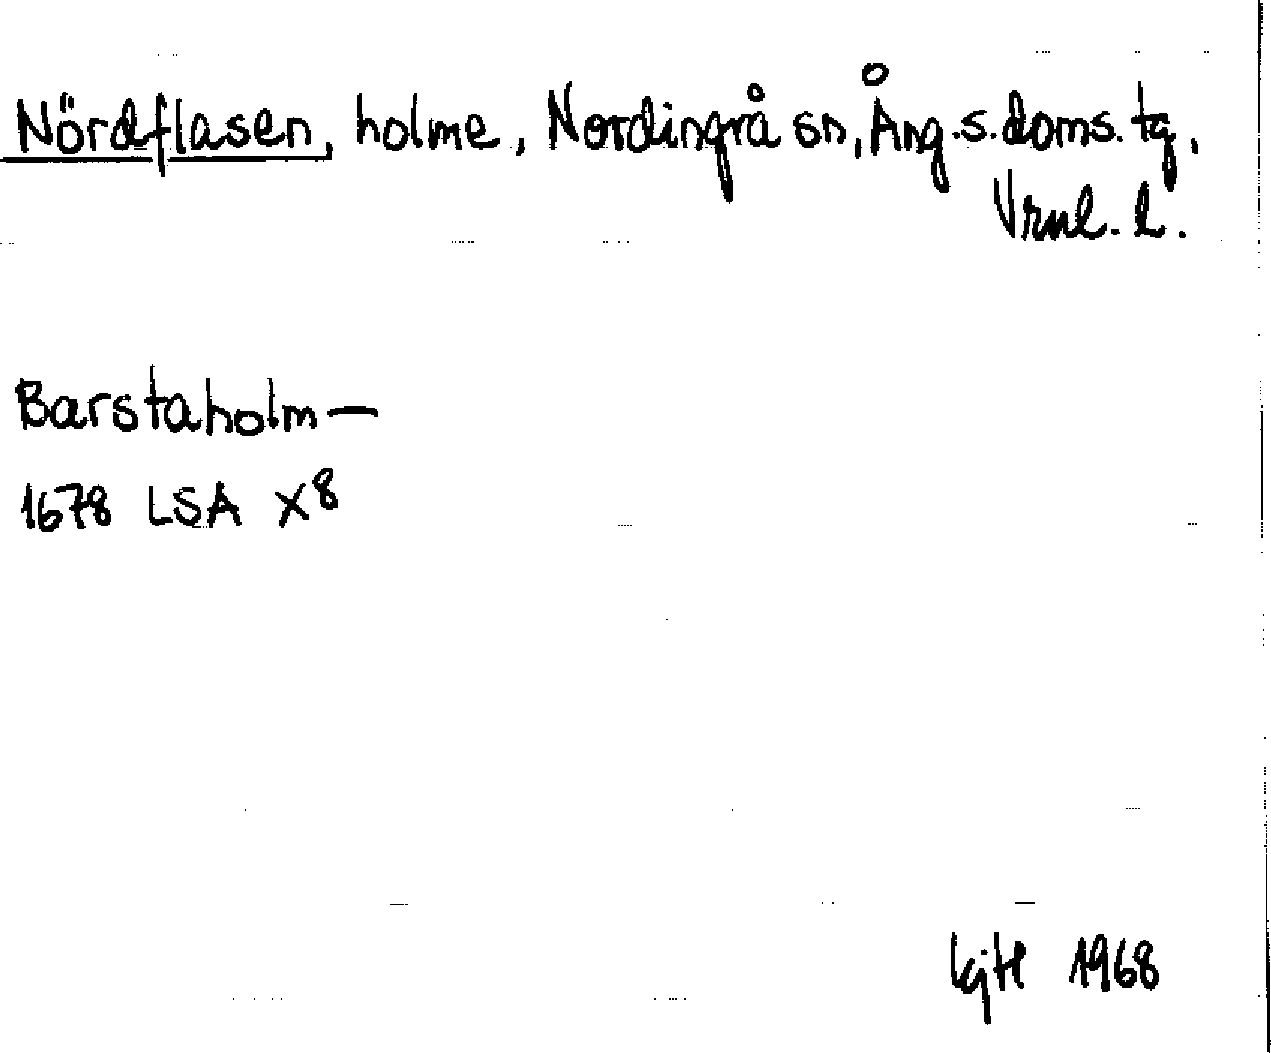 Nördflasen, holme, Nordingrå sn, Ång.s.doms.tg,
Vrnl. l.
Barstaholm—
1678 LSA X8
1968